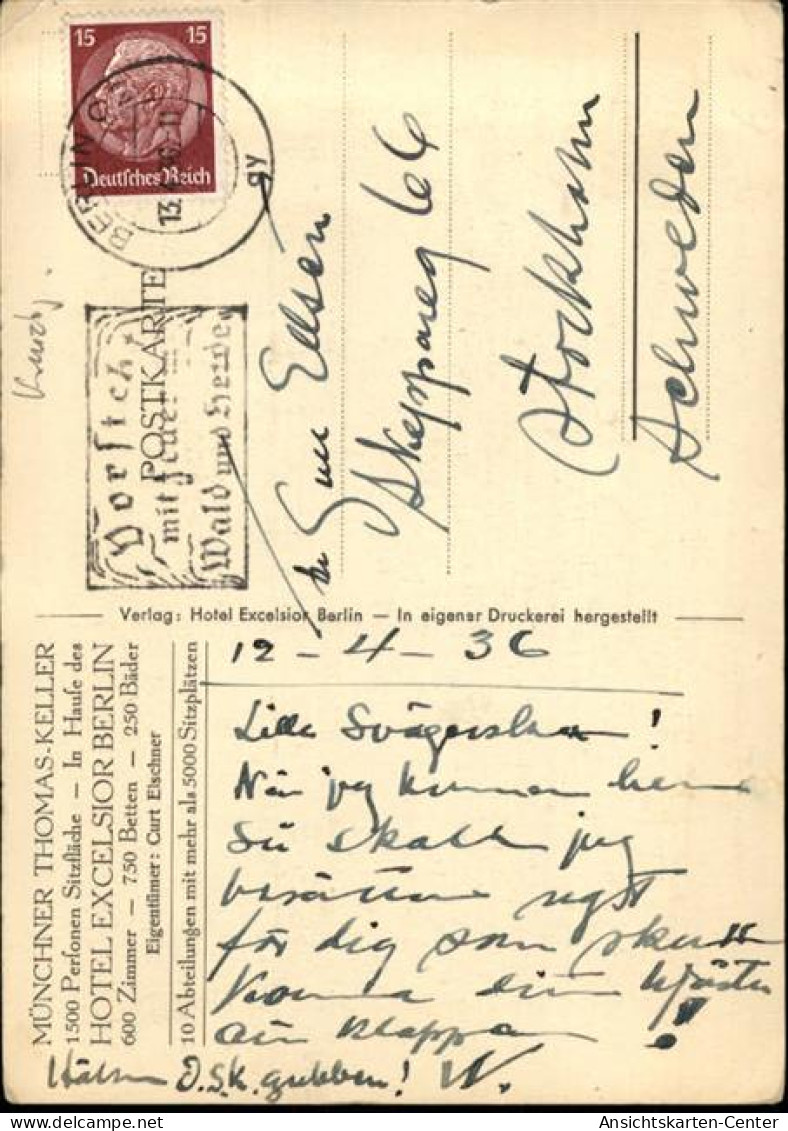 15 15
Deutsches Reich
BERLIN
13. 36.-11
av
POSTKARTE
Vorsicht
mit Feuer in
Wald und Heide
Ellsén
Skeppareg 66
Stockholm
Schweden
Verlag: Hotel Excelsior Berlin — In eigener Druckerei hergestellt
MÜNCHNER THOMAS-KELLER
1500 Personen Sitzfläche — In Hause des
HOTEL EXCELSIOR BERLIN
600 Zimmer — 750 Betten — 250 Bäder
Eigentümer: Curt Elschner
10 Abteilungen mit mehr als 5000 Sitzplätzen
12 – 4 – 36
Lilla Svägerskan!
När jag kommer hem
så skall jag
berätta något
för dig som skall
komma ditt hjärta
att klappa!!
Hälsa D.S.K. gubben! W.
Ansichtskarten-Center